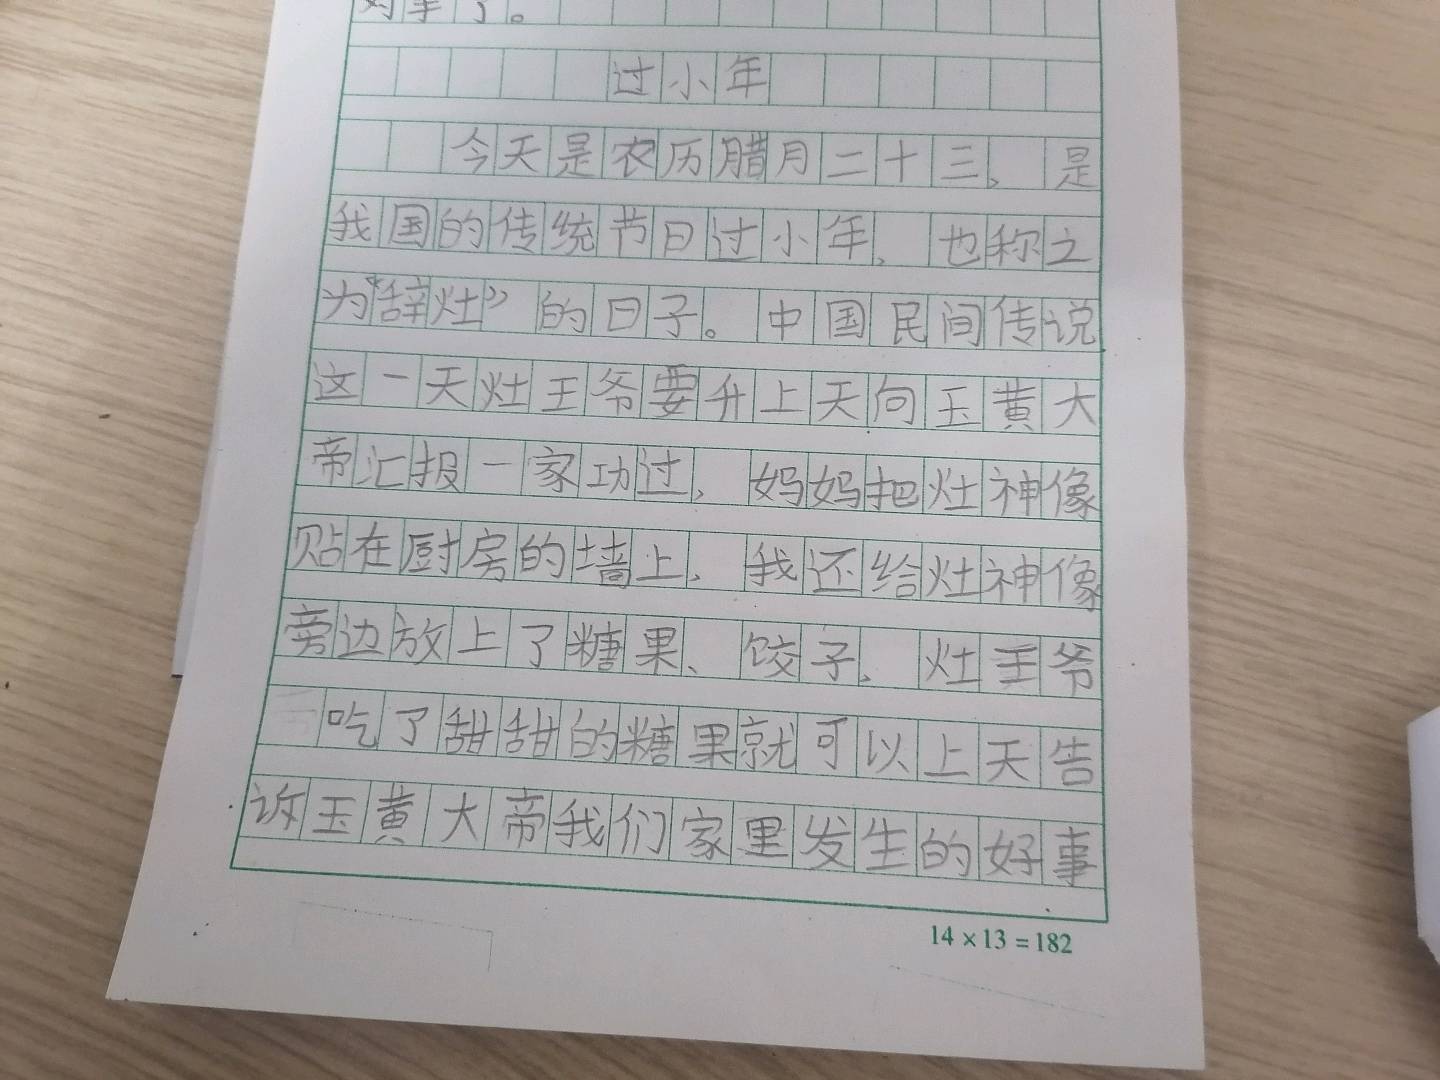 好事了。
过小年
今天是农历腊月二十三，是
我国的传统节日过小年，也称之
为“辞灶”的日子。中国民间传说
这一天灶王爷要升上天向玉黄大
帝汇报一家功过，妈妈把灶神像
贴在厨房的墙上，我还给灶神像
旁边放上了糖果、饺子，灶王爷
吃了甜甜的糖果就可以上天告
诉玉黄大帝我们家里发生的好事
14×13=182